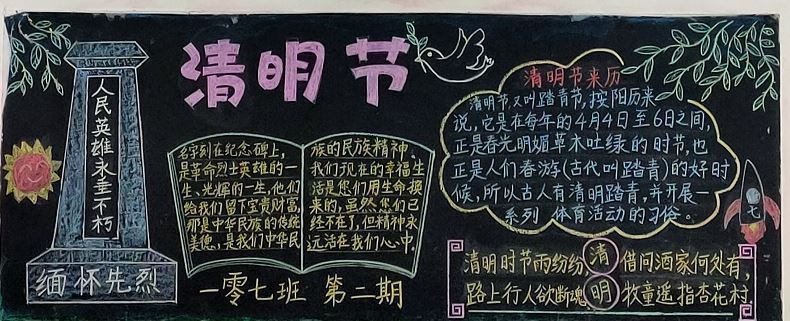 清明节
人民英雄永垂不朽
缅怀先烈
名字刻在纪念碑上,
是革命烈士英雄的一
生、光辉的一生,他们
给我们留下宝贵财富,
那是中华民族的传统
美德,是我们中华民
族的民族精神。
我们现在的幸福生
活是您们用生命换
来的,虽然您们已
经不在了,但精神永
远活在我们心中。
一零七班 第二期
清明节来历
清明节又叫踏青节,按阳历来
说,它是在每年的4月4日至6日之间,
正是春光明媚草木吐绿的时节,也
正是人们春游(古代叫踏青)的好时
候,所以古人有清明踏青,并开展一
系列体育活动的习俗。
七
清明时节雨纷纷,
路上行人欲断魂
清明
借问酒家何处有,
牧童遥指杏花村.